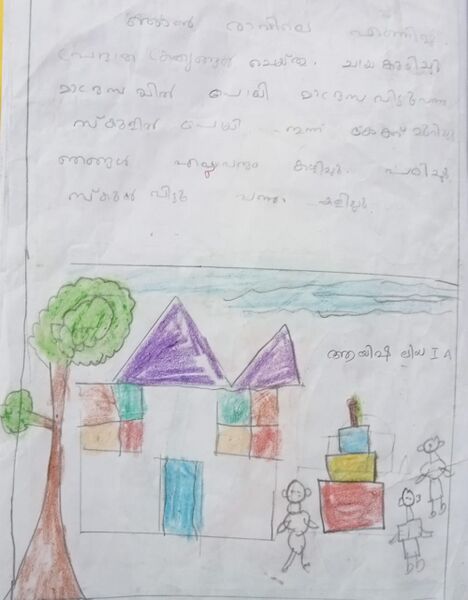 ഞാൻ രാവിലെ എണീച്ചു.
പ്രഭാത കൃത്യങ്ങൾ ചെയ്തു. ചായ കുടിച്ചു
മദ്രസയിൽ പോയി മദ്രസ വിട്ടു വന്നു
സ്കൂളിൽ പോയി ഇന്ന് കേക്ക് മുറിച്ചു
ഞങ്ങൾ എല്ലാവരും കഴിച്ചു. പഠിച്ചു
സ്കൂൾ വിട്ടു വന്നു കളിച്ചു.
ആയിഷ ലിയ I A